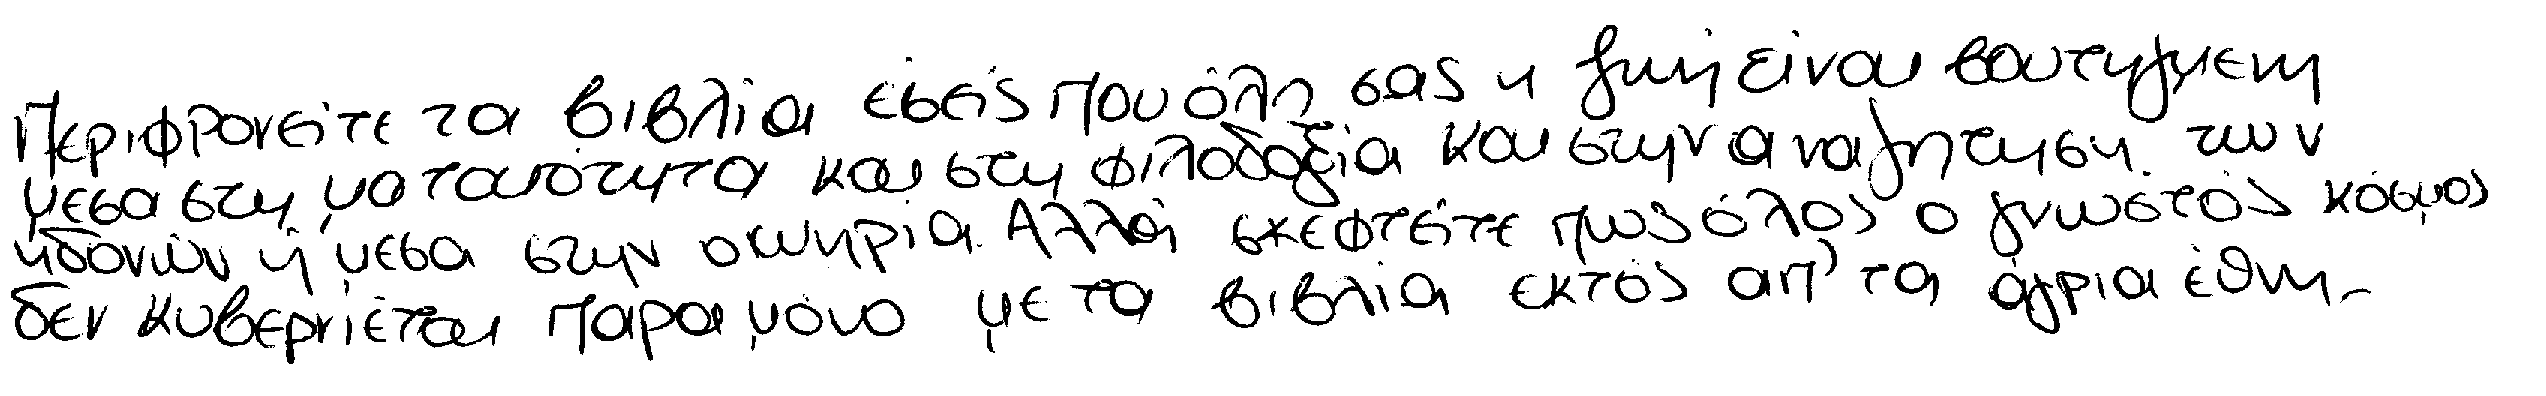 Περιφρονείτε τα βιβλία εσείς που όλη σας η ζωή είναι βουτηγμένη
μεσα στη ματαιότητα και στη φιλοδοξία και στην αναζήτηση των
ηδονών ή μεσα στην οκνηρία. Αλλά σκεφτείτε πως όλος ο γνωστός κόσμος
δεν κυβερνιέται παρα μόνο με τα βιβλία εκτός απ' τα άγρια έθνη.